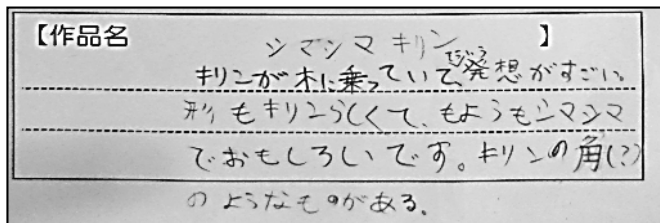 【作品名 シマシマキリン 】
キリンが木に乗っていて、発想がすごい。
形もキリンらしくて、もようもシマシマ
でおもしろいです。キリンの角(?)
のようなものがある。